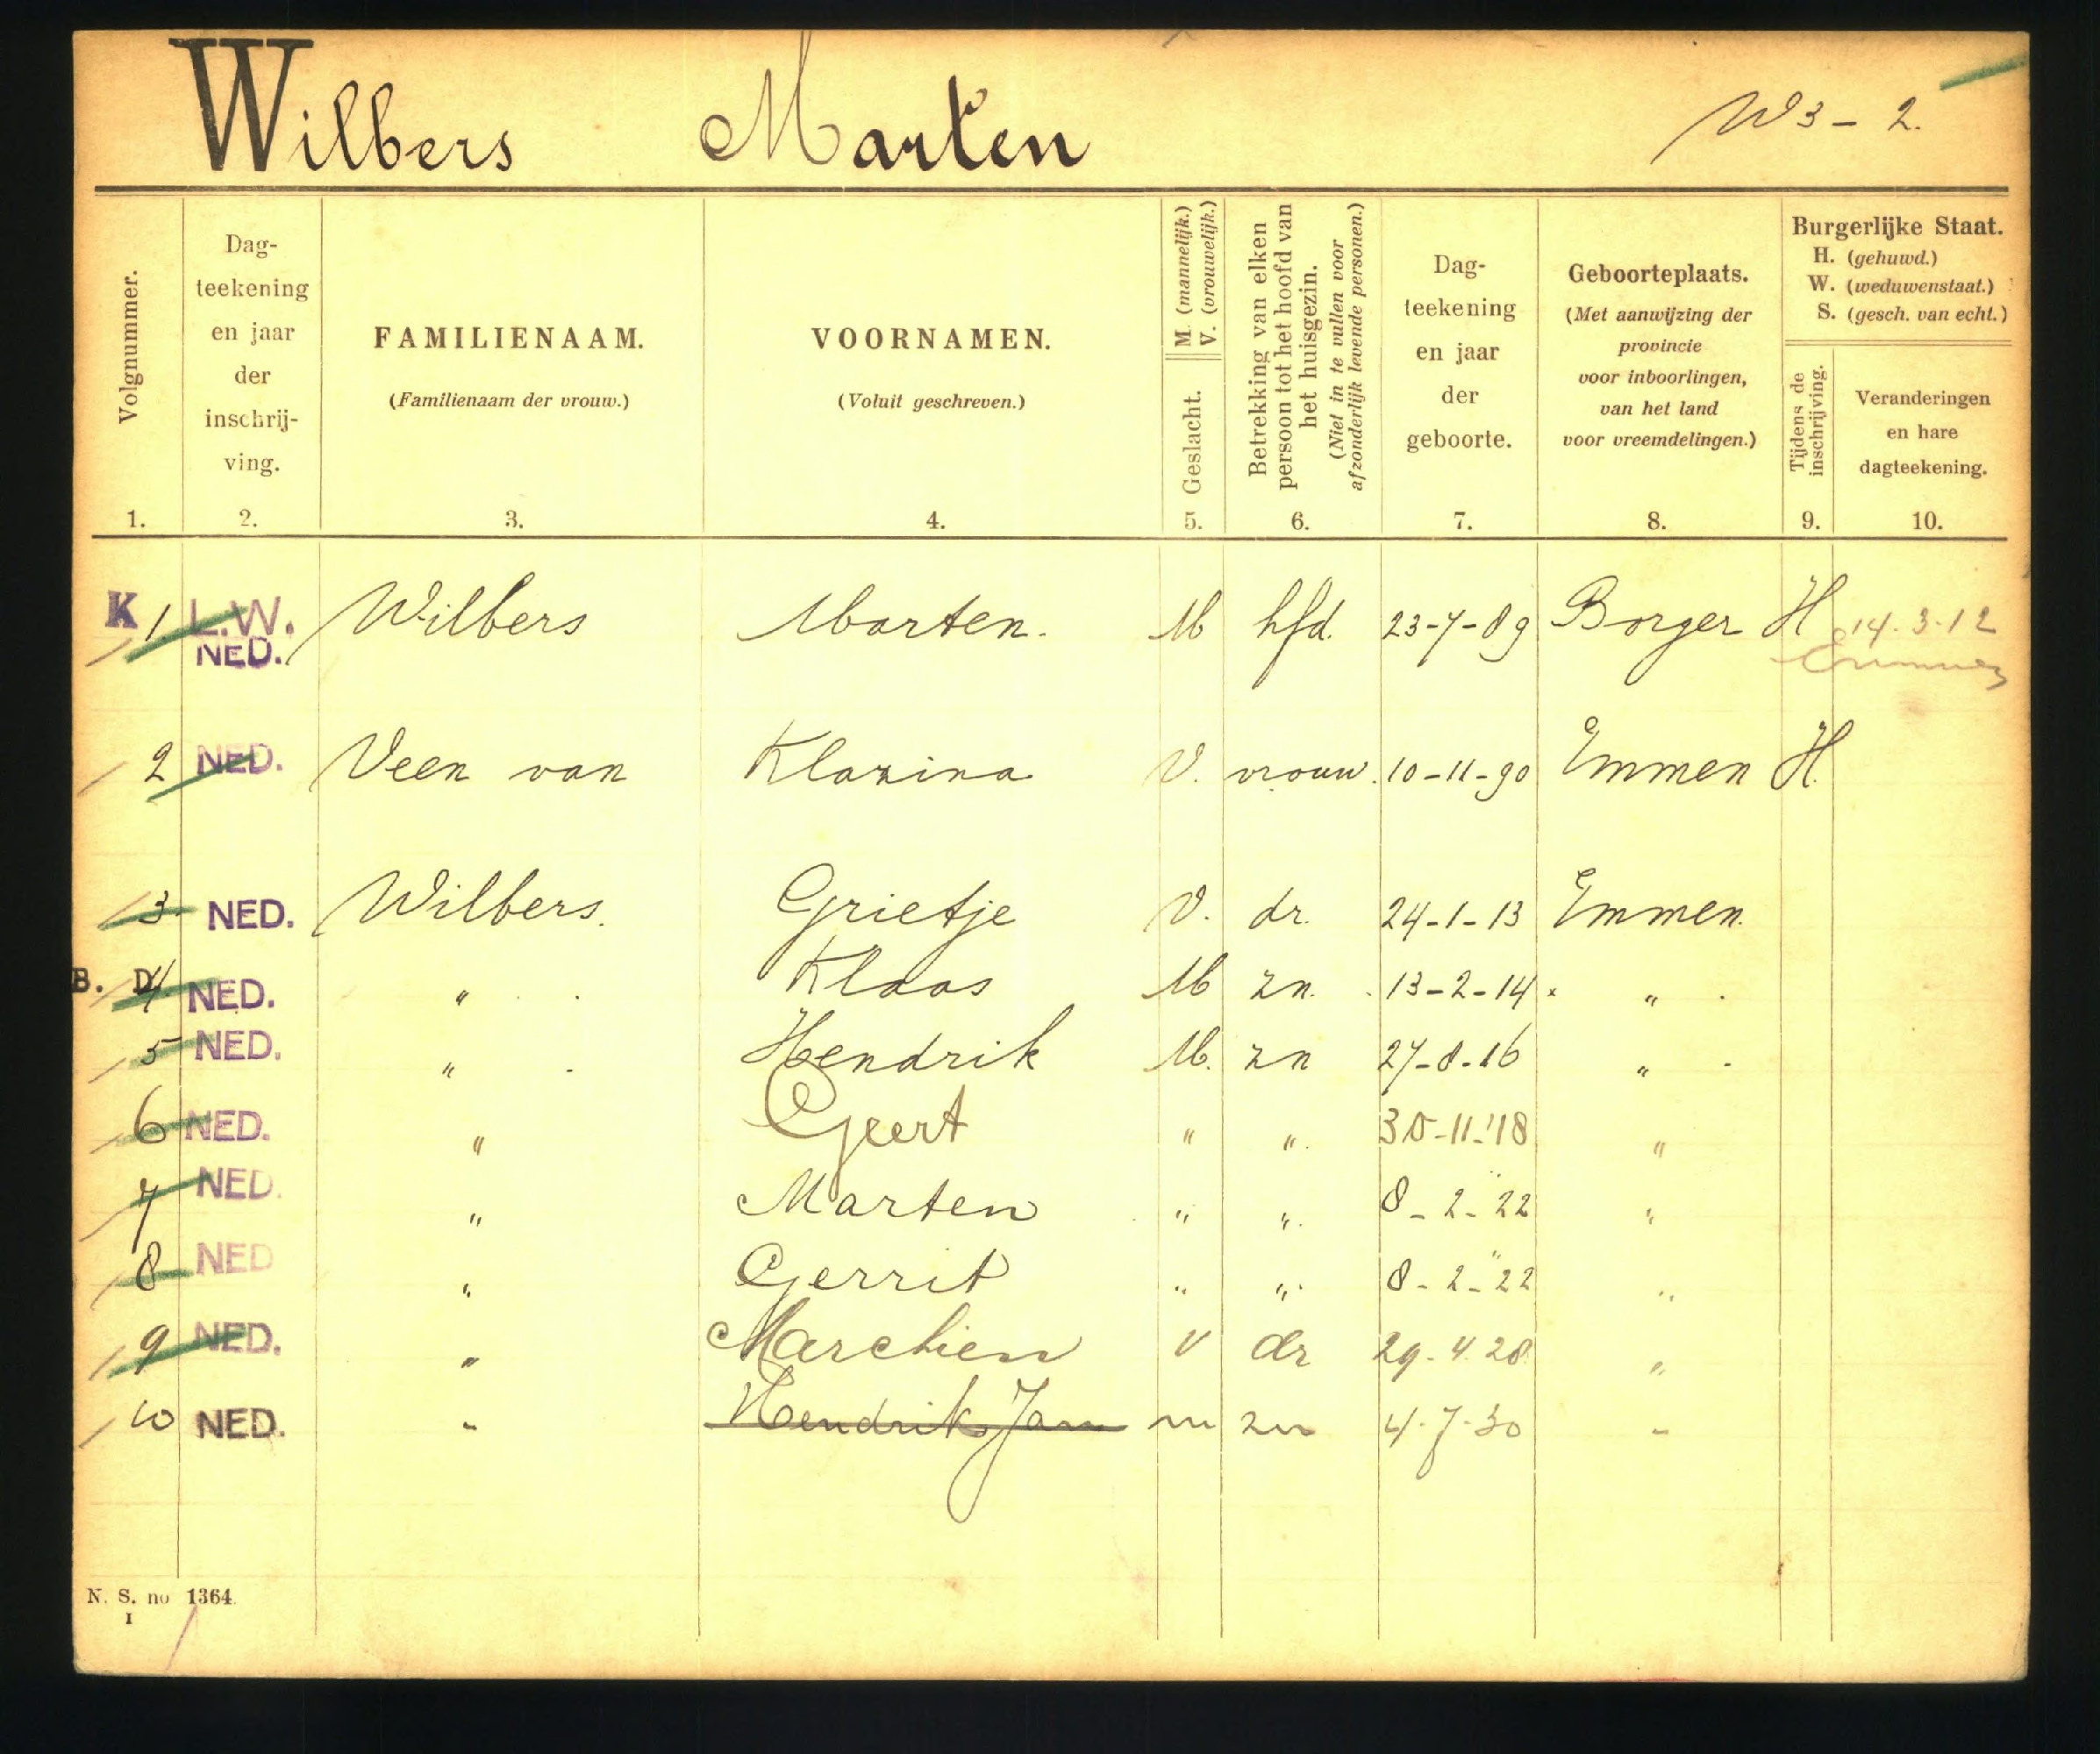 Wilbers Marten W3 - 2.
Volgnummer.
1.
Dag-
teekening
en jaar
der
inschrij-
ving.
2.
FAMILIENAAM.
(Familienaam der vrouw.)
3.
VOORNAMEN.
(Voluit geschreven.)
4.
M. (mannelijk.)
V. (vrouwelijk.)
Geslacht.
5.
Betrekking van elken
persoon tot het hoofd van
het huisgezin.
(Niet in te vullen voor
afzonderlijk levende personen.)
6.
Dag-
teekening
en jaar
der
geboorte.
7.
Geboorteplaats.
(Met aanwijzing der
provincie
voor inboorlingen,
van het land
voor vreemdelingen.)
8.
Burgerlijke Staat.
H. (gehuwd.)
W. (weduwenstaat.)
S. (gesch. van echt.)
Tijdens de
inschrijving.
9.
Veranderingen
en hare
dagteekening.
10.
K 1 L.W. Wilbers Marten. M hfd. 23-7-89 Borger H 14.3.12
NED. Emmen
2 NED. Veen van Klazina V. vrouw. 10-11-90 Emmen H.
3 NED. Wilbers. Grietje V. dr. 24-1-13 Emmen.
B. D. 4 NED. " Klaas M zn. 13-2-14 "
5 NED. " Hendrik M. zn 27-8-16 "
6 NED. " Geert " " 30-11-'18 "
7 NED. " Marten " " 8-2-22 "
8 NED " Gerrit " " 8-2-22 "
9 NED. " Marchien V dr 29.4.28 "
10 NED. " Hendrik Jan m zn 4.7.30 "
N. S. no 1364.
I